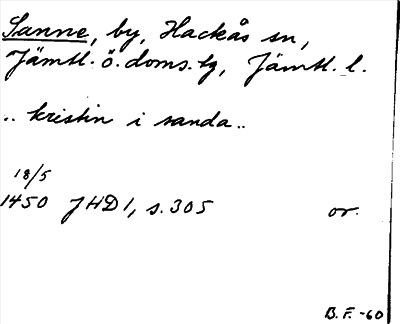 Sanne, by, Hackås sn,
Jämtl. ö. doms.lg, Jämtl. l.
.. kristin i sanda..
18/5
1450 JHD 1, s. 305 or.
B. F. -60